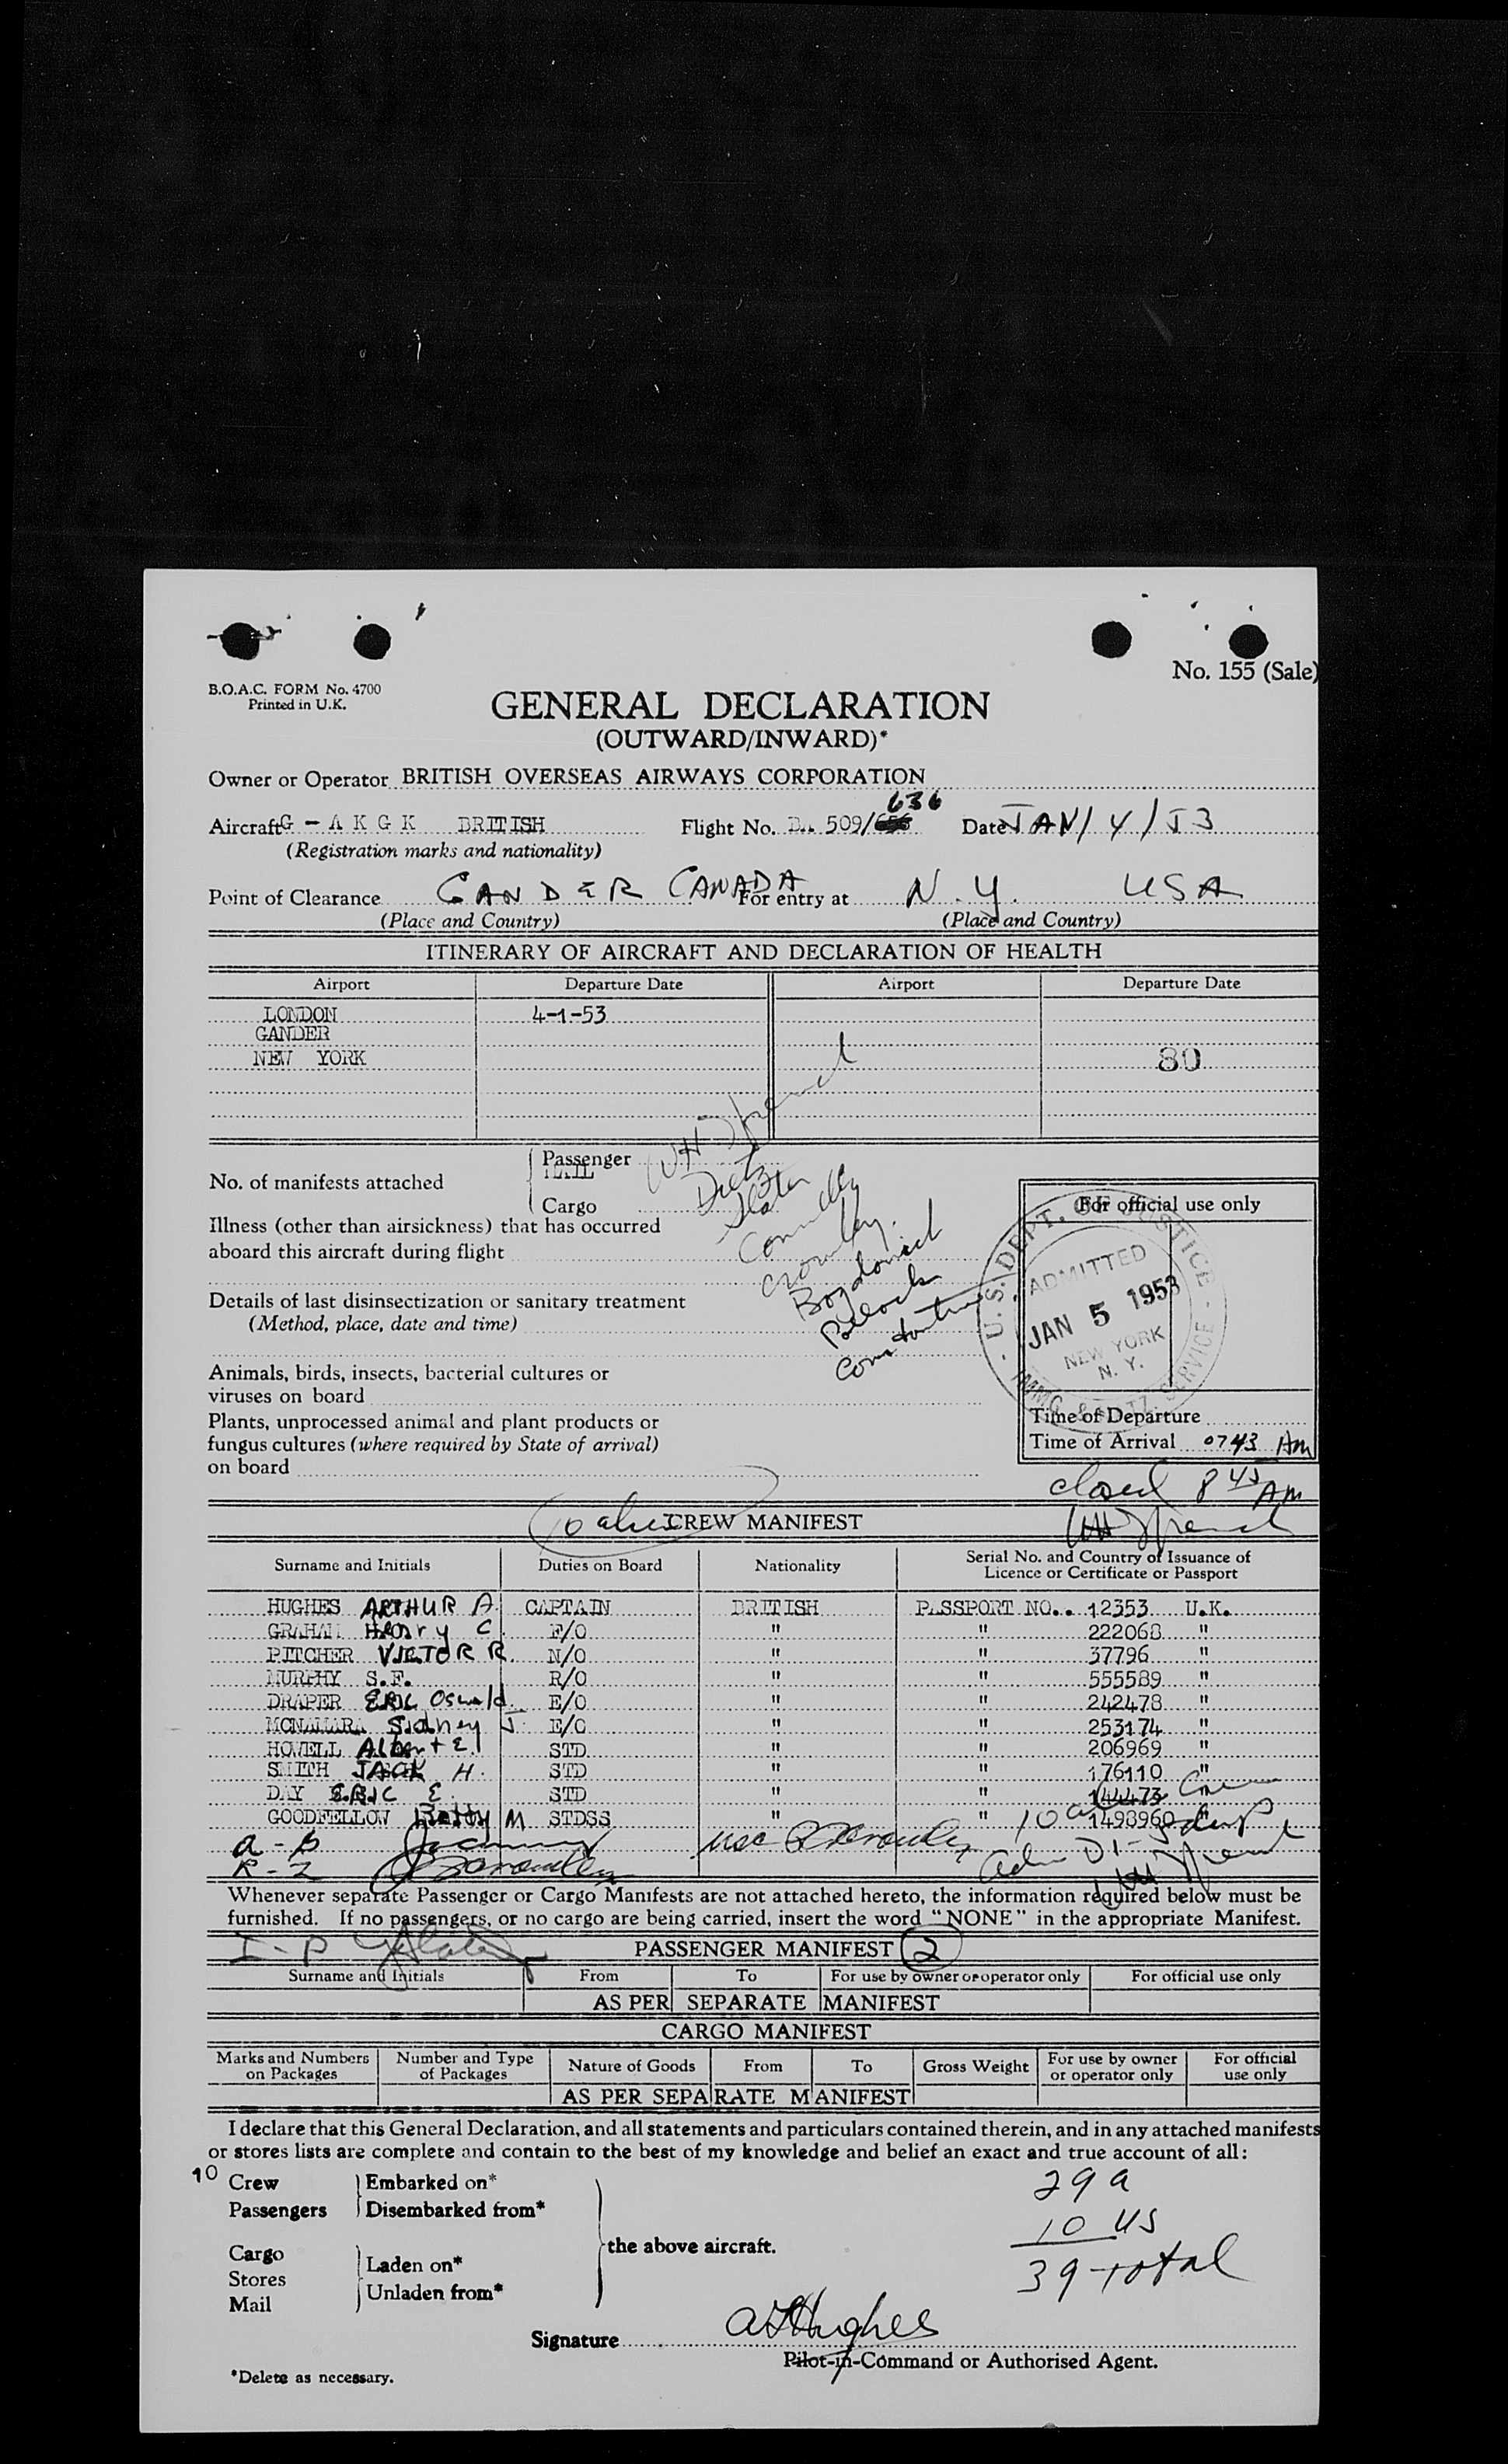 No. 155 (Sale)
B.O.A.C. FORM No. 4700
Printed in U.K.
GENERAL DECLARATION
(OUTWARD/INWARD)*
Owner or Operator BRITISH OVERSEAS AIRWAYS CORPORATION
636
Aircraft G - A K G K BRITISH Flight No. B. 509/ Date JAN/4/53
(Registration marks and nationality)
Point of Clearance GANDER CANADA For entry at N.Y. USA
(Place and Country) (Place and Country)
ITINERARY OF AIRCRAFT AND DECLARATION OF HEALTH
Airport Departure Date Airport Departure Date
LONDON 4-1-53
GANDER
NEW YORK 80
No. of manifests attached
Passenger
MAIL
Cargo
Dietz
Slater
Connolly
Crowley
Pollock
Illness (other than airsickness) that has occurred
aboard this aircraft during flight
Details of last disinsectization or sanitary treatment
(Method, place, date and time)
Animals, birds, insects, bacterial cultures or
viruses on board
Plants, unprocessed animal and plant products or
fungus cultures (where required by State of arrival)
on board
For official use only
U.S. DEPT. OF JUSTICE
ADMITTED
JAN 5 1953
NEW YORK
N. Y.
IMMG. & NATZ. SERVICE
Time of Departure
Time of Arrival 0743 AM
closed 8 45 AM
WH French
CREW MANIFEST
Surname and Initials Duties on Board Nationality Serial No. and Country of Issuance of
Licence or Certificate or Passport
HUGHES ARTHUR A. CAPTAIN BRITISH PASSPORT NO.. 12353 U.K.
GRAHAM Henry C. F/O " " 222068 "
PITCHER VICTOR R. N/O " " 37796 "
MURPHY S.F. R/O " " 555589 "
DRAPER ERIC Oswald. E/O " " 242478 "
MCNAMARA Sidney J. E/O " " 253174 "
HOWELL Albert E. STD " " 206969 "
SMITH JACK H. STD " " 176110 "
DAY ERIC E. STD " " 144473 "
GOODFELLOW Betty M STDSS " " 1498960 "
A - B
R - Z
Whenever separate Passenger or Cargo Manifests are not attached hereto, the information required below must be
furnished. If no passengers, or no cargo are being carried, insert the word "NONE" in the appropriate Manifest.
I - P
PASSENGER MANIFEST 2
Surname and Initials From To For use by owner or operator only For official use only
AS PER SEPARATE MANIFEST
CARGO MANIFEST
Marks and Numbers on Packages Number and Type of Packages Nature of Goods From To Gross Weight For use by owner or operator only For official use only
AS PER SEPARATE MANIFEST
I declare that this General Declaration, and all statements and particulars contained therein, and in any attached manifests
or stores lists are complete and contain to the best of my knowledge and belief an exact and true account of all:
10 Crew Embarked on*
Passengers Disembarked from*
the above aircraft.
Cargo
Stores
Mail
Laden on*
Unladen from*
29 a
10 US
39 total
Signature A Hughes
Pilot-in-Command or Authorised Agent.
*Delete as necessary.